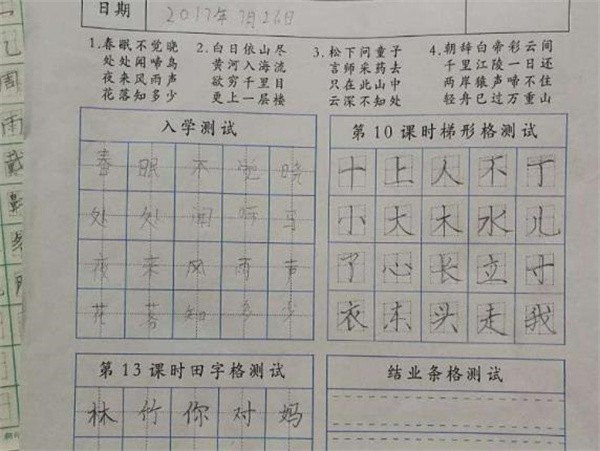 日期 2017年7月26日
1.春眠不觉晓 2.白日依山尽 3.松下问童子 4.朝辞白帝彩云间
处处闻啼鸟 黄河入海流 言师采药去 千里江陵一日还
夜来风雨声 欲穷千里目 只在此山中 两岸猿声啼不住
花落知多少 更上一层楼 云深不知处 轻舟已过万重山
入学测试
春眠不觉晓
处处闻啼鸟
夜来风雨声
花落知多少
第10课时梯形格测试
十上人不丁
小大木水儿
了心长立寸
衣东头走我
第13课时田字格测试
林竹你对妈
结业条格测试